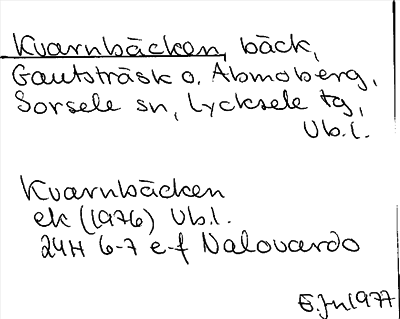 Kvarnbäcken, bäck,
Gautsträsk o. Abmoberg,
Sorsele sn, Lycksele tg,
Vb.l.
Kvarnbäcken
ek (1976) Vb.l.
24H 6-7 e-f Nalovardo
1977